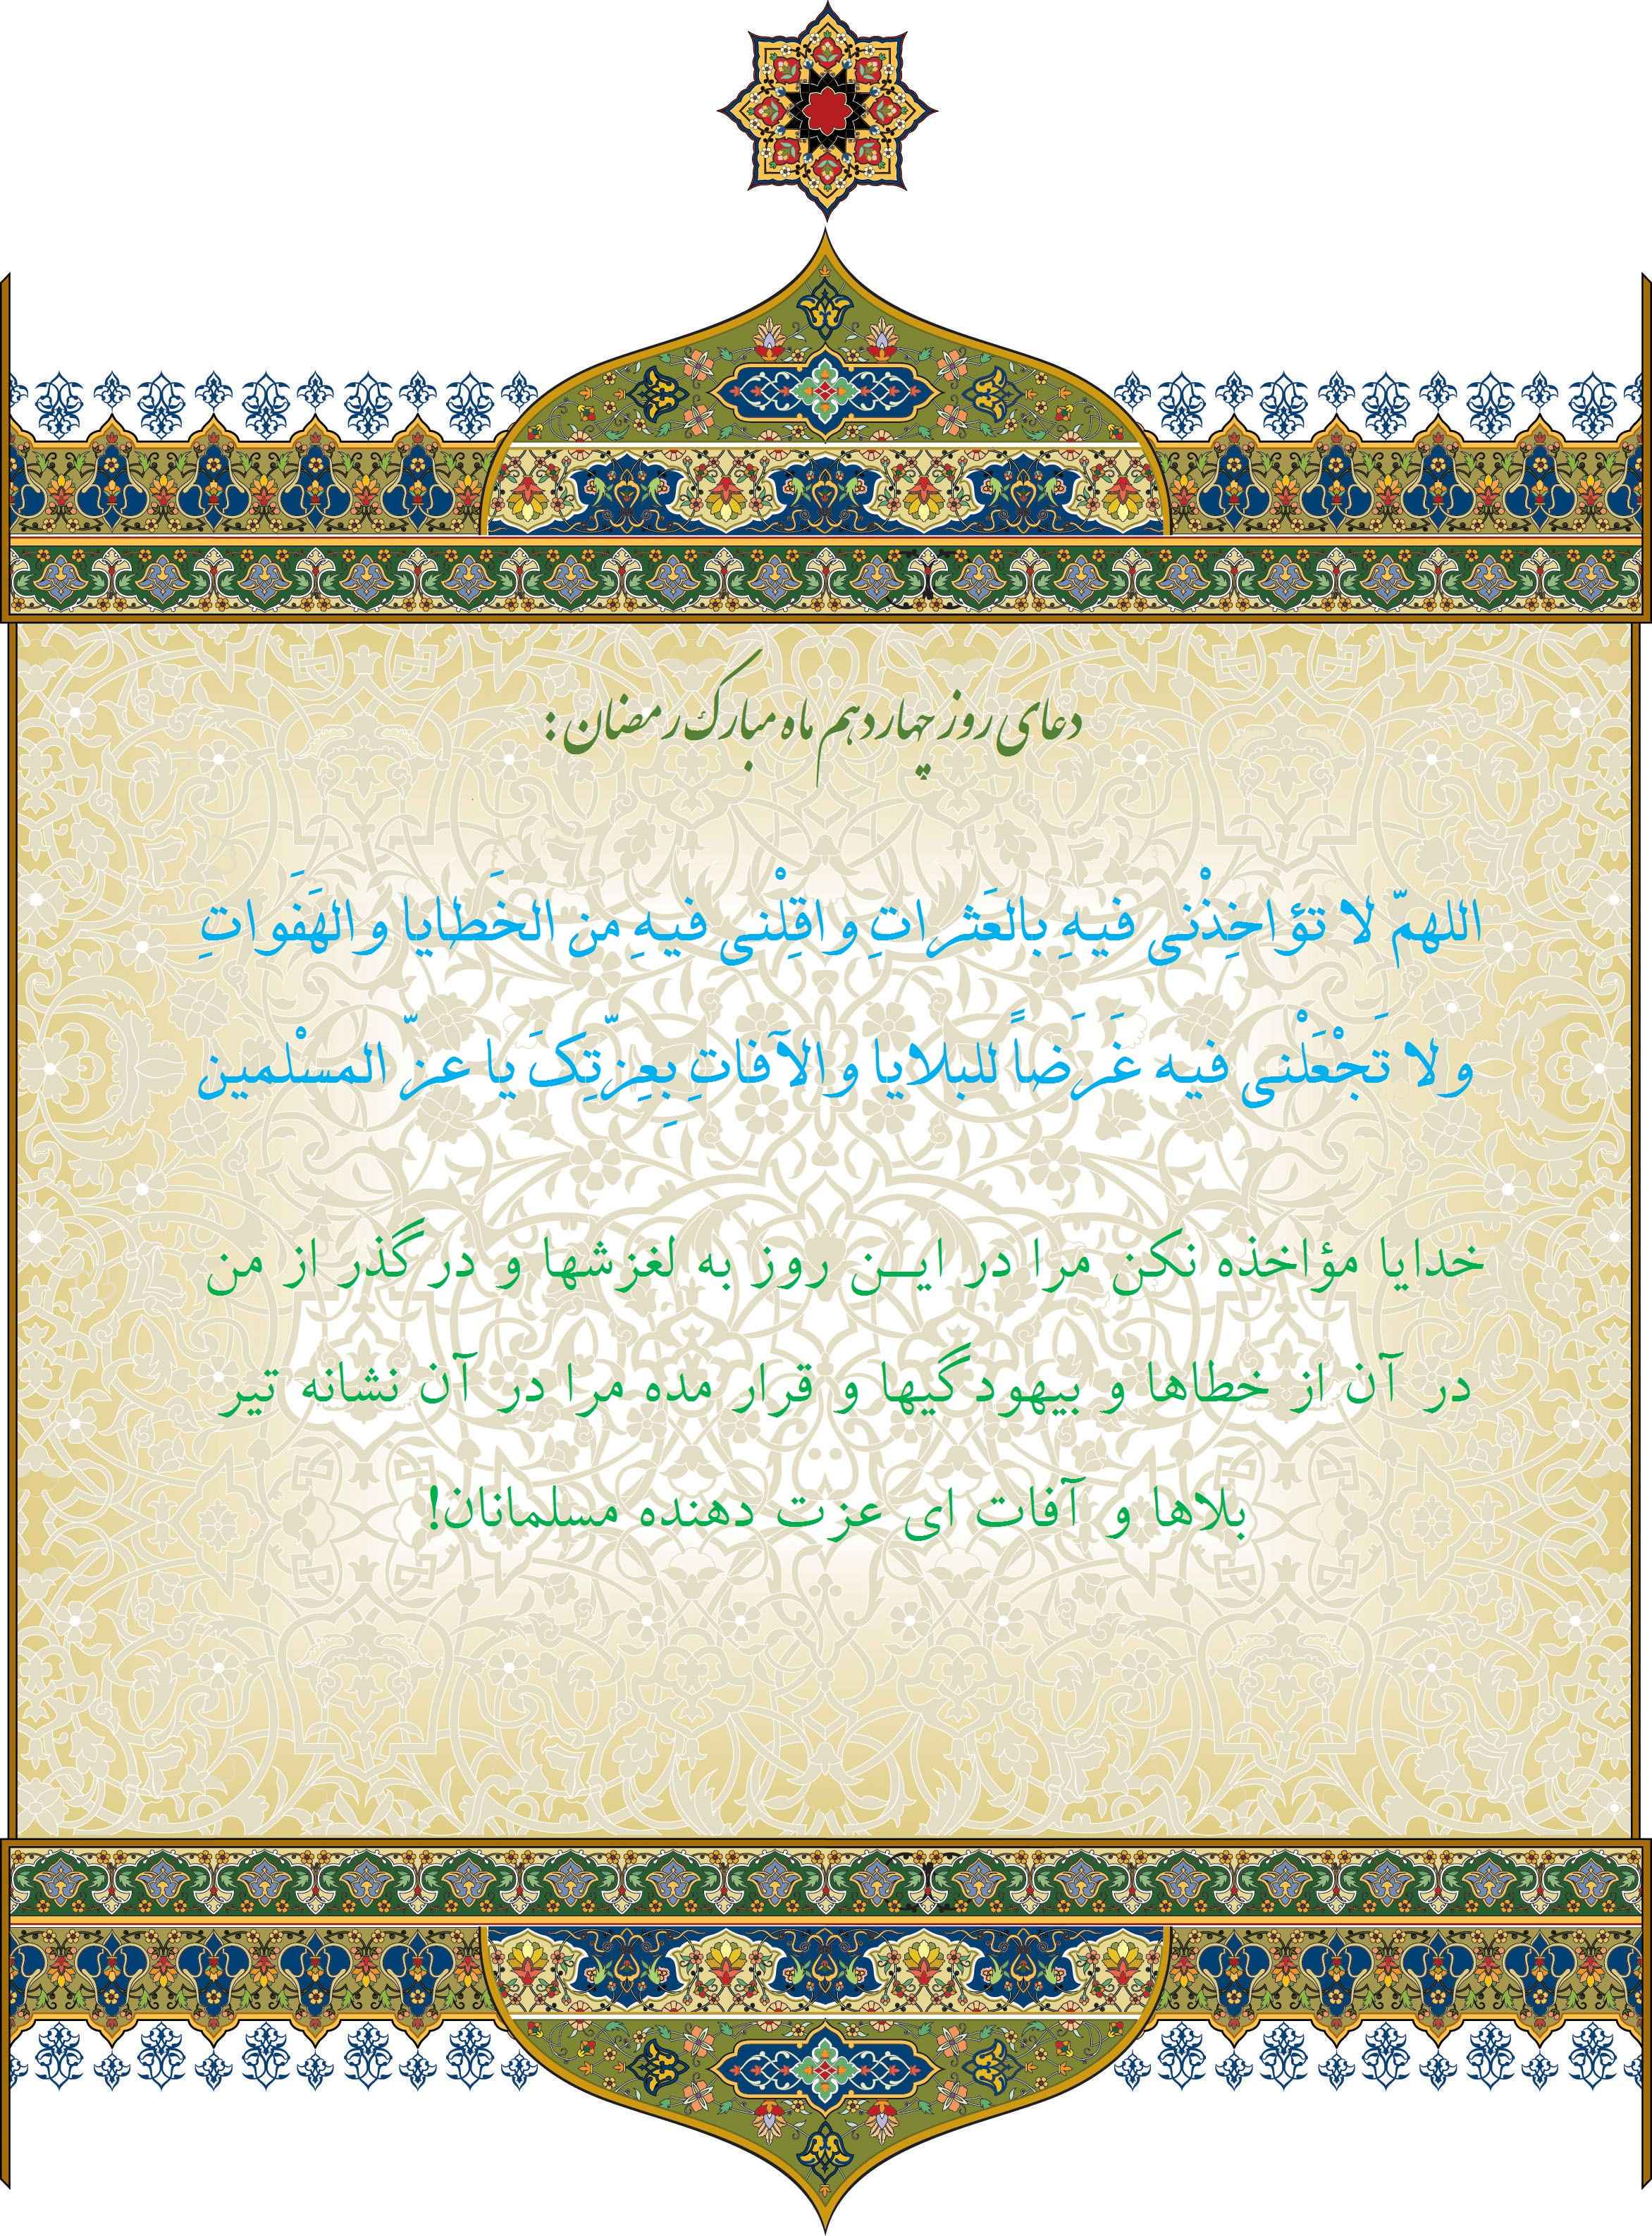 دعای روز چهاردهم ماه مبارک رمضان :
اللهمّ لا تؤاخِذْنی فیهِ بالعَثراتِ واقِلْنی فیهِ من الخَطایا والهَفَواتِ
ولا تَجْعَلْنی فیه غَرَضاً للبلایا والآفاتِ بِعِزّتِکَ یا عزّ المسْلمین
خدایا مؤاخذه نکن مرا در ایـــن روز به لغزشها و درگذر از من
در آن از خطاها و بیهودگیها و قرار مده مرا در آن نشانه تیر
بلاها و آفات ای عزت دهنده مسلمانان!